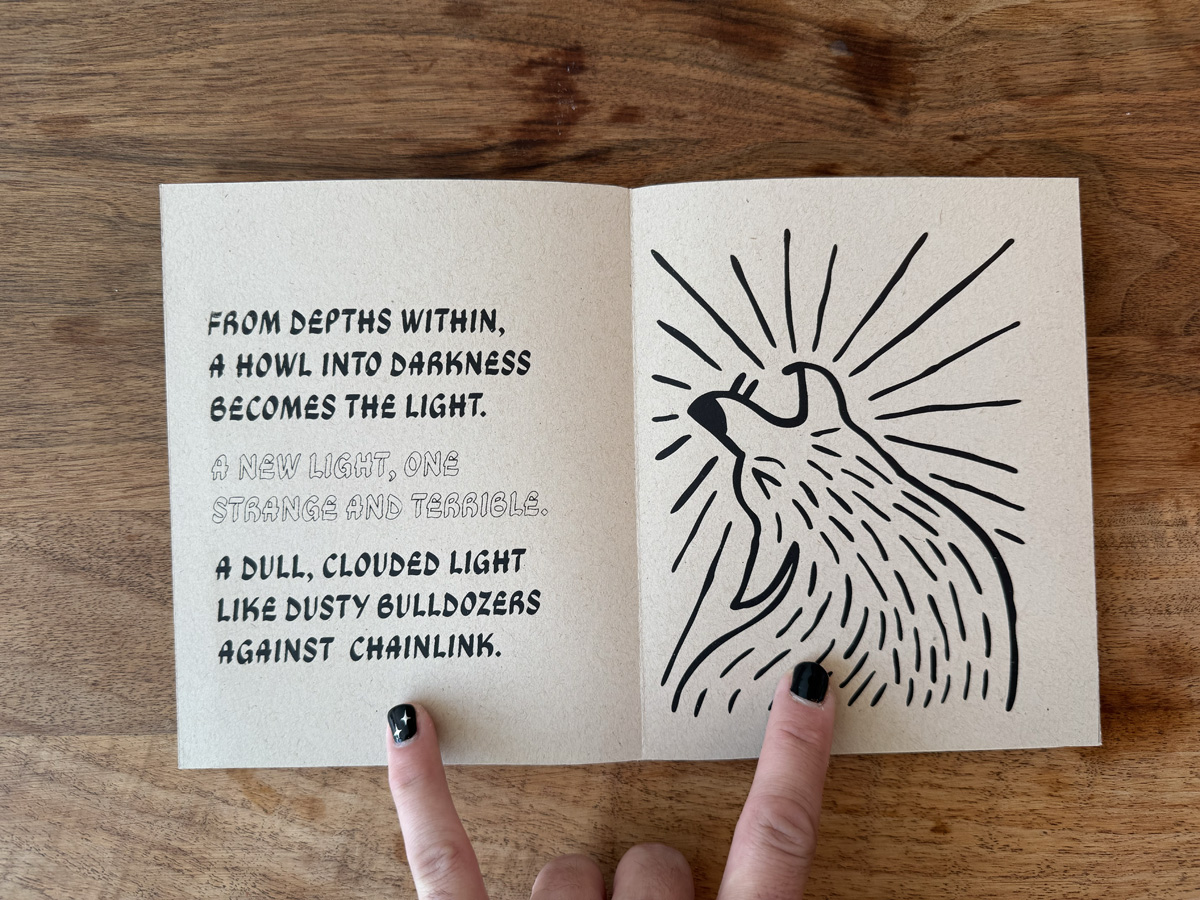 FROM DEPTHS WITHIN,
A HOWL INTO DARKNESS
BECOMES THE LIGHT.
A NEW LIGHT, ONE
STRANGE AND TERRIBLE.
A DULL, CLOUDED LIGHT
LIKE DUSTY BULLDOZERS
AGAINST CHAINLINK.